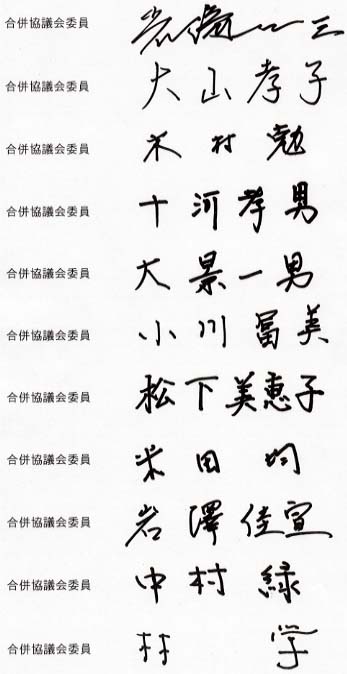 合併協議会委員
合併協議会委員 大山孝子
合併協議会委員 木村勉
合併協議会委員 十河孝男
合併協議会委員 大景一男
合併協議会委員 小川冨美
合併協議会委員 松下美恵子
合併協議会委員 米田均
合併協議会委員 岩澤佳宣
合併協議会委員 中村緑
合併協議会委員 林学